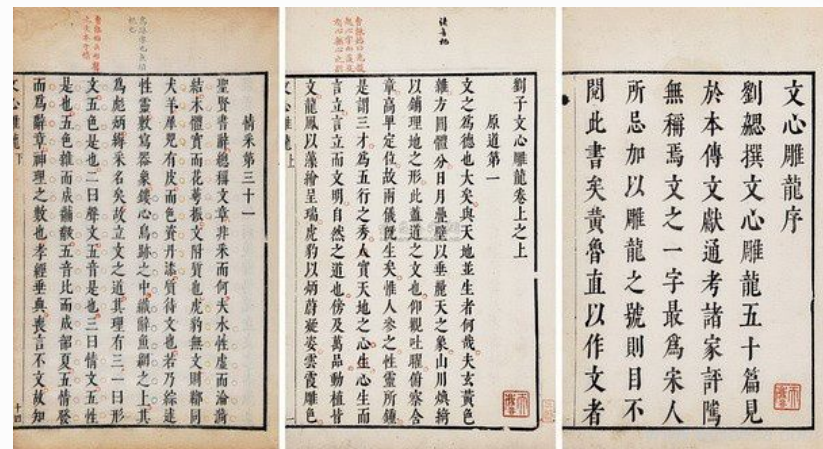 文心雕龍序
劉勰撰文心雕龍五十篇見
於本傳文獻通考諸家評隲
無稱焉文之一字最爲宋人
所忌加以雕龍之號則目不
閱此書矣黃魯直以作文者
劉子文心雕龍卷上之上
原道第一
文之爲德也大矣與天地並生者何哉夫玄黃色
雜方圓體分日月疊璧以垂麗天之象山川煥綺
以鋪理地之形此蓋道之文也仰觀吐曜俯察含
章高卑定位故兩儀旣生矣惟人參之性靈所鍾
是謂三才爲五行之秀人實天地之心生心生而
言立言立而文明自然之道也傍及萬品動植皆
文龍鳳以藻繪呈瑞虎豹以炳蔚凝姿雲霞雕色
文心雕龍 上
情采第三十一
聖賢書辭總稱文章非采而何夫水性虛而淪漪
結木體實而花萼振文附質也虎豹無文則鞹同
犬羊犀兕有皮而色資丹漆質待文也若乃綜述
性靈敷寫器象鏤心鳥跡之中織辭魚網之上其
爲彪炳縟采名矣故立文之道其理有三一曰形
文五色是也二曰聲文五音是也三曰情文五性
是也五色雜而成黼黻五音比而成韶夏五情發
而爲辭章神理之數也孝經垂典喪言不文故知
文心雕龍 下
十四